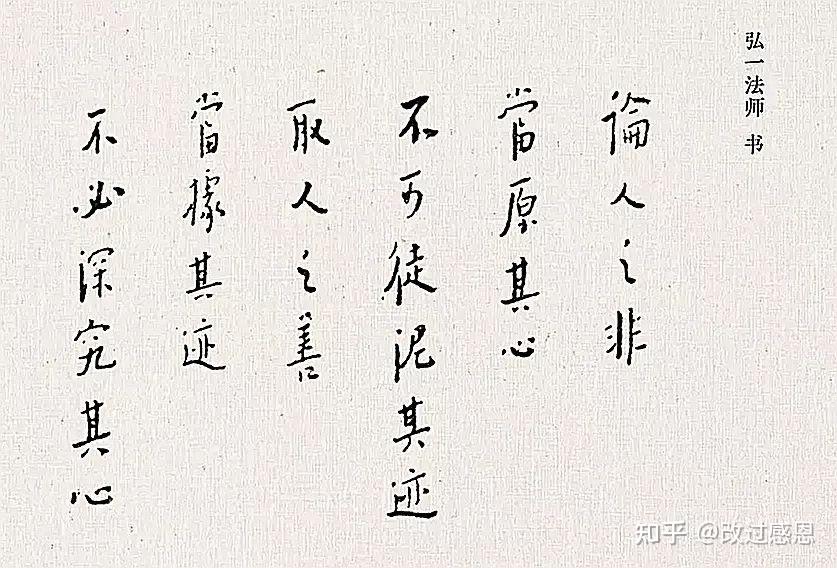 弘一法师 书
論人之非
當原其心
不可徒泥其迹
取人之善
當據其迹
不必深究其心
知乎 @改过感恩